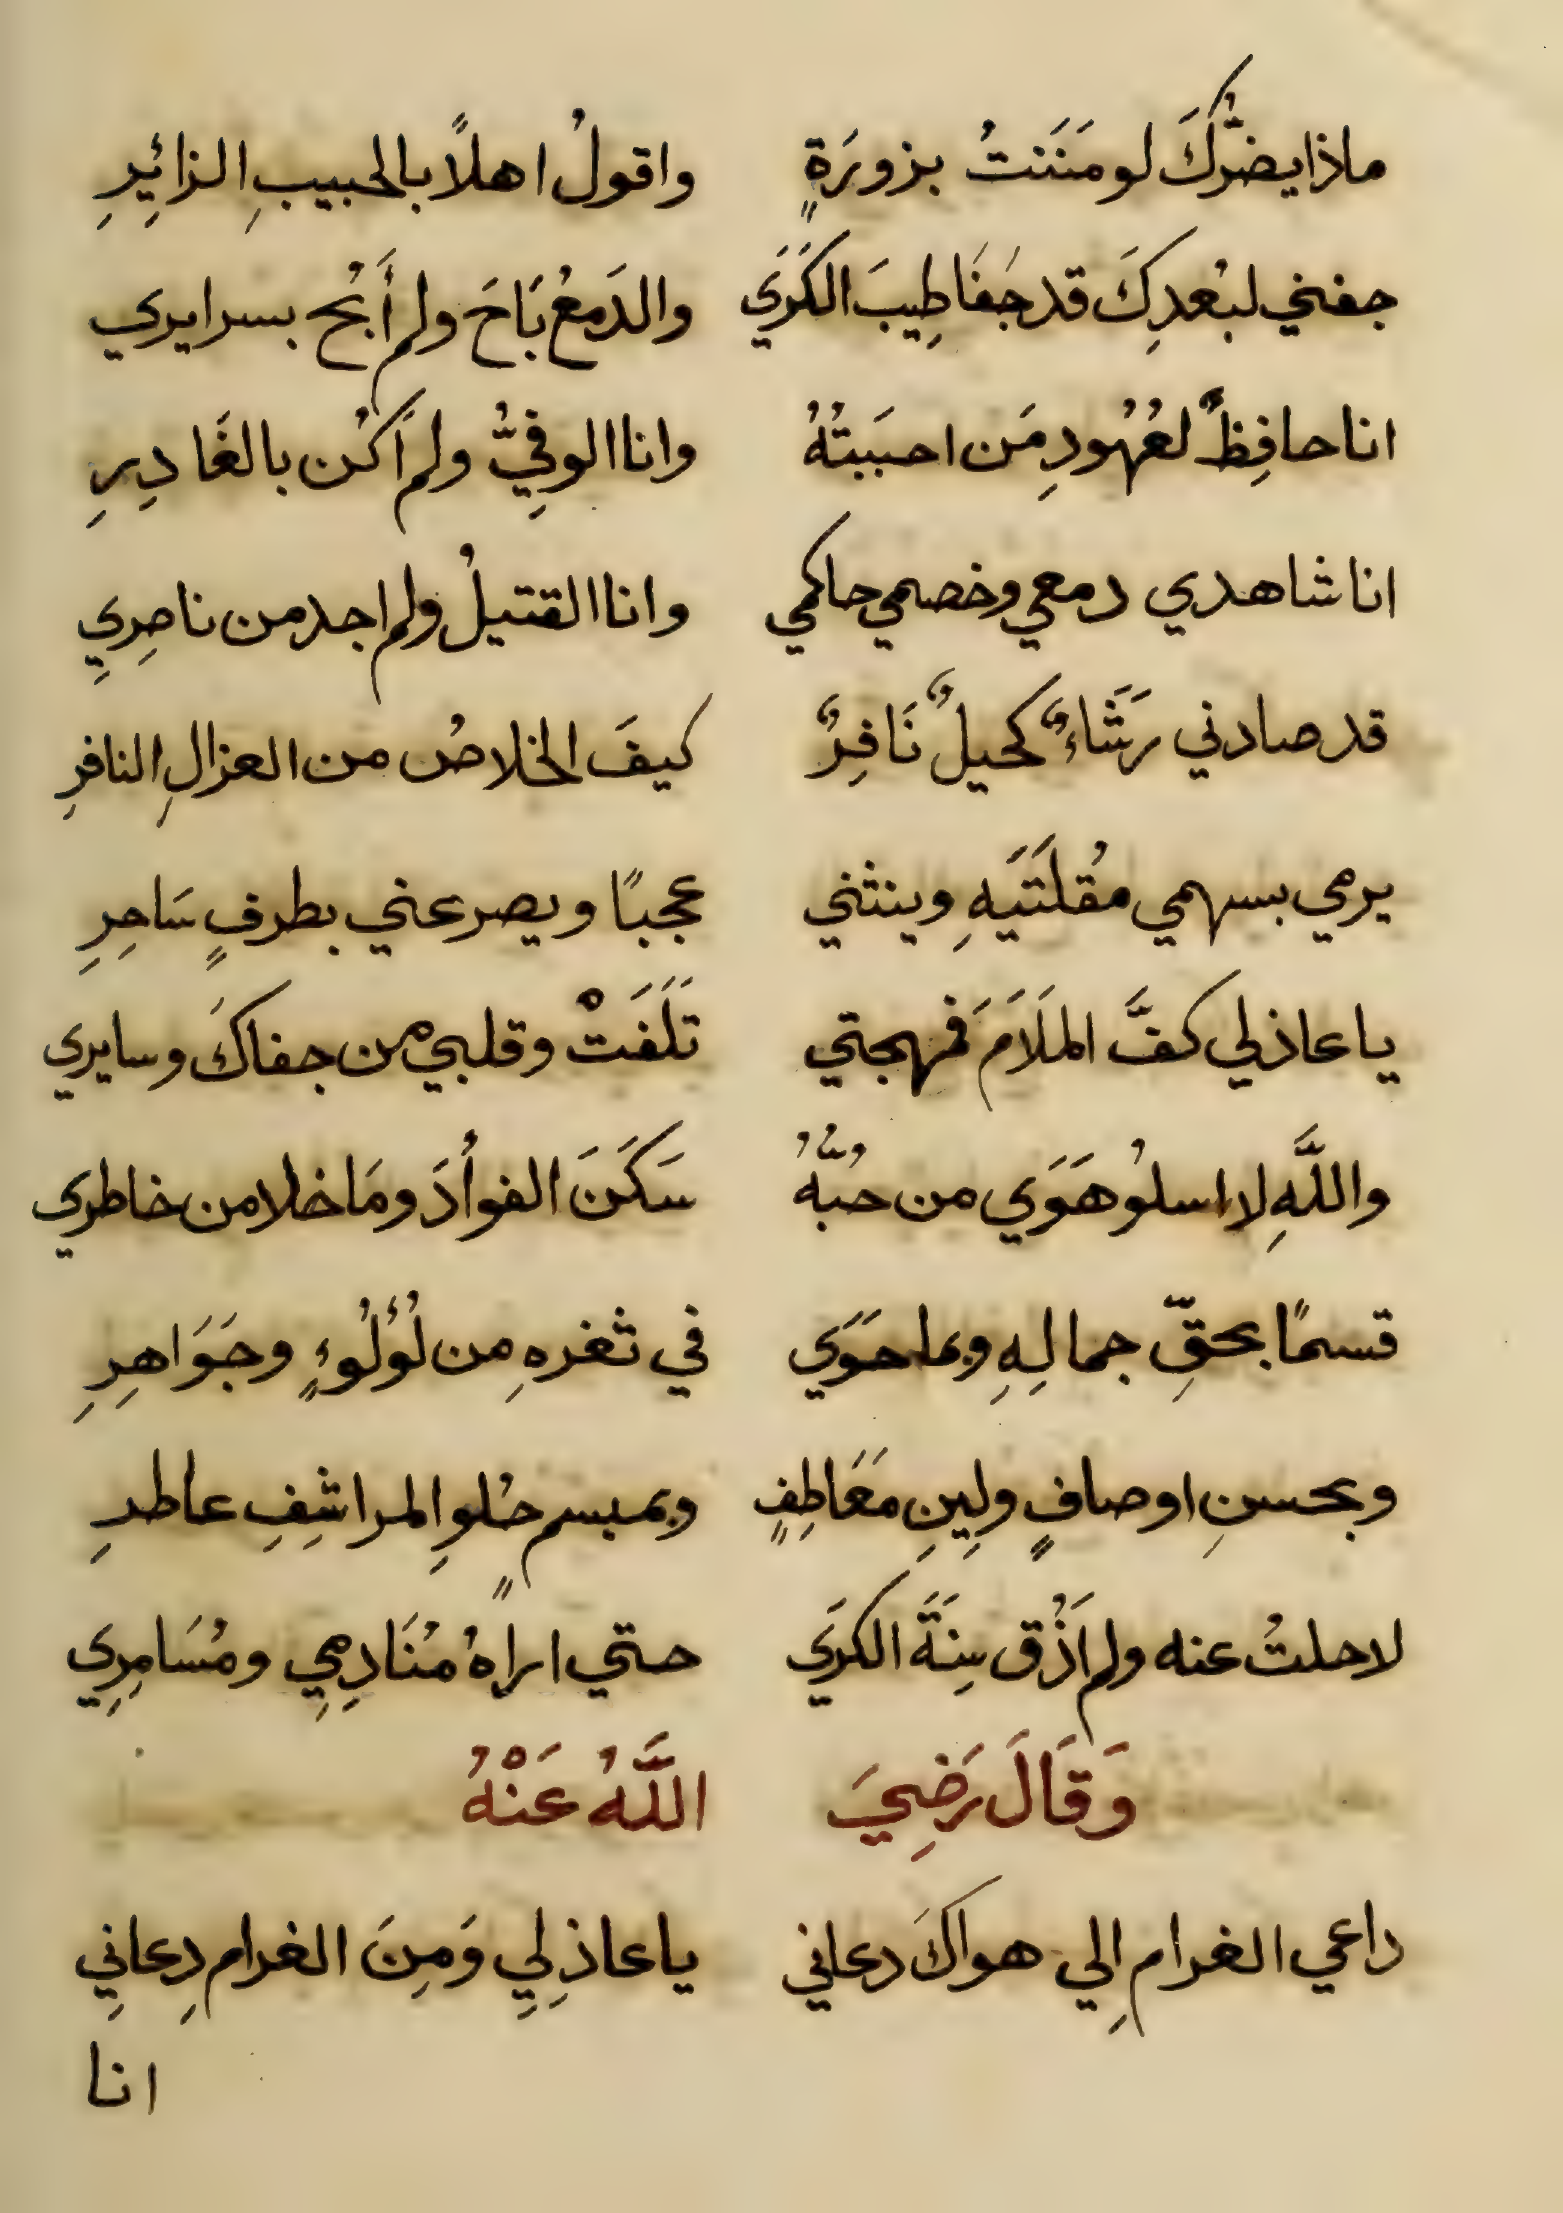 ماذا يضُرُّكَ لو مَنَنتُ بزورَةٍ واقولُ اهلاً بالحبيبِ الزائِرِ
جفني لبُعدِكَ قد جَفَا طِيبَ الكَرَي والدَمعُ بَاحَ ولم أَبُح بسرايري
انا حافِظٌ لعُهُودِ مَن احببتُهُ وانا الوفِيُّ ولم اَكُن بالغَادِرِ
انا شاهدي دمعي وخصمي حاكمي وانا القتيلُ ولم اجد من ناصِرِي
قد صادني رَشَاءٌ كحيلٌ نَافِرٌ كيفَ الخلاصُ من العزالِ النافرِ
يرمي بسهمي مقُلَتَيَهِ وينثني عجبًا ويصرعني بطرفٍ سَاحِرِ
يا عاذلي كفَّ الملَاَمَ فمهجتي تَلَفَتْ وقلبي من جفاكَ وسايري
واللَّهِ لا اسلوُ هَوَي من حُبُّهُ سَكَنَ الفواُدَ ومَا خلا من خاطري
قسمًا بحقِّ جمالِهِ وبما حَوَي في ثغرهِ مِن لُؤلُوءٍ وجَوَاهِرِ
وبحسنِ اوصافٍ ولِينِ مَعَاطِفٍ وبمبسمٍ حُلوِ المراشِفِ عاطرِ
لا حلتُ عنه ولم اَذُق سِنَةَ الكرَي حتي اراهُ مُنَادِمِي ومُسَامِرِي
وَقَالَ رَضِيَ اللَّهُ عَنْهُ
داعي الغرام اِلي هواكَ دعاني يا عاذِلِي وَمِنَ الغرام دِعانِي
انا